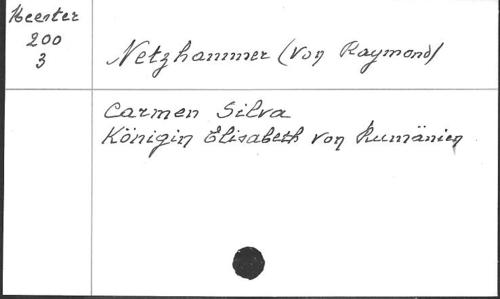 Heester
200
3
Netzhammer (von Raymond)
Carmen Silva
Königin Elisabeth von Rumänien